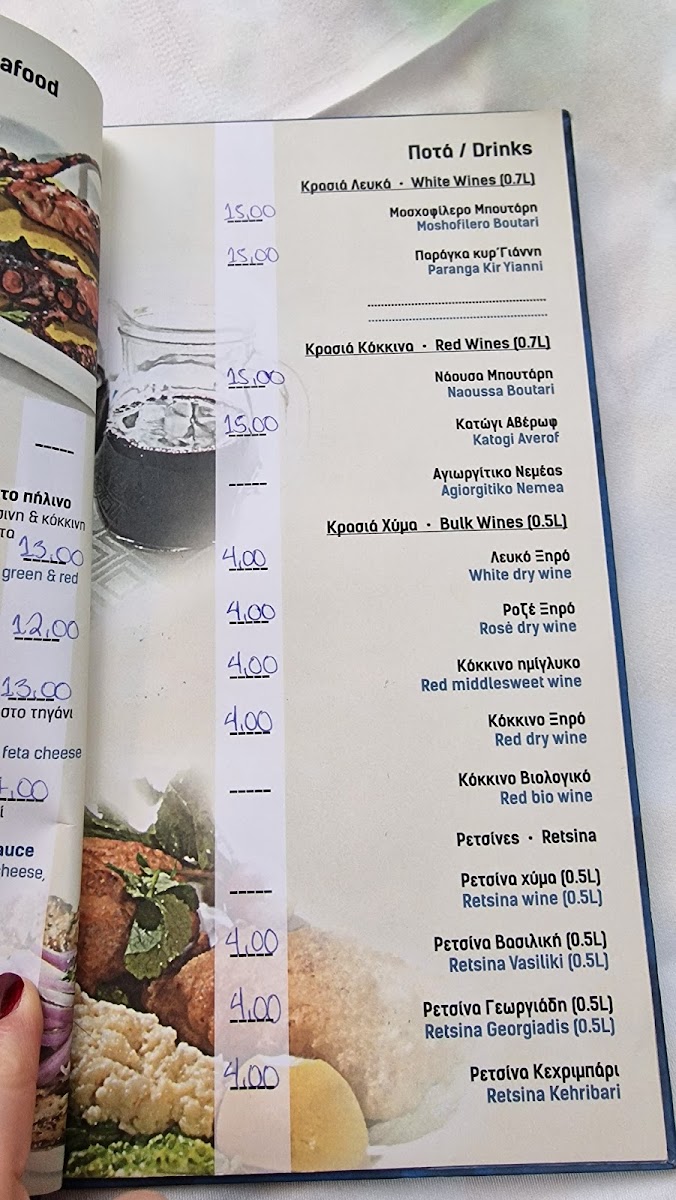 afood
το πήλινο
σινη & κόκκινη
τα
13,00
green & red
12,00
13,00
στο τηγάνι
feta cheese
auce
cheese,
Ποτά / Drinks
Κρασιά Λευκά · White Wines (0.7L)
15,00 Μοσχοφίλερο Μπουτάρη
Moshofilero Boutari
15,00 Παράγκα κυρ'Γιάννη
Paranga Kir Yianni
Κρασιά Κόκκινα · Red Wines (0.7L)
15,00 Νάουσα Μπουτάρη
Naoussa Boutari
15,00 Κατώγι Αβέρωφ
Katogi Averof
Αγιωργίτικο Νεμέας
Agiorgitiko Nemea
Κρασιά Χύμα · Bulk Wines (0.5L)
4,00 Λευκό Ξηρό
White dry wine
4,00 Ροζέ Ξηρό
Rosė dry wine
4,00 Κόκκινο ημίγλυκο
Red middlesweet wine
4,00 Κόκκινο Ξηρό
Red dry wine
Κόκκινο Βιολογικό
Red bio wine
Ρετσίνες · Retsina
Ρετσίνα χύμα (0.5L)
Retsina wine (0.5L)
4,00 Ρετσίνα Βασιλική (0.5L)
Retsina Vasiliki (0.5L)
4,00 Ρετσίνα Γεωργιάδη (0.5L)
Retsina Georgiadis (0.5L)
4,00 Ρετσίνα Κεχριμπάρι
Retsina Kehribari